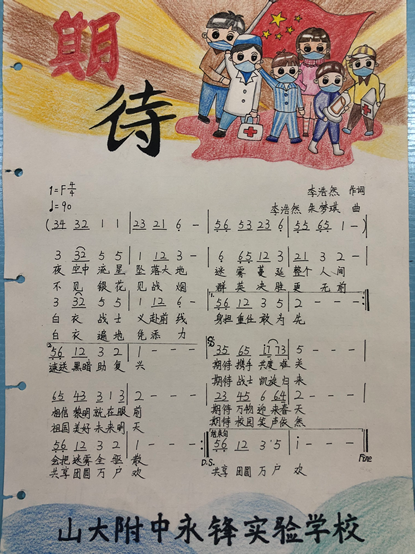 期
待
1=F 4/4
♩=90
李浩然 作词
李浩然 朱梦瑛 曲
(34 32 1 1 | 23 21 6 - | 56 53 23 6 | 55 65 1 - )
3 32 5 5 | 1 12 3 - | 6 65 12 3 | 21 3 2 - |
夜 空中 流 星 坠 落大 地 迷 雾 蔓 延 整个 人 间
不 见 银 花 见 战 烟 群 英 决 胜 更 无 前
3 32 5 5 | 1 12 6 - | 56 12 3 5 | 2 - - - :|
白 衣 战 士 义 赴前 线 身担 重任 敢 为 先
白 衣 遍 地 凭 添 力
56 12 3 2 | 1 - - - | 35 65 17 73 | 5 - - - |
驱逐 黑暗 助 复 兴 期待 携手 共度 难 关
期待 战士 凯旋 归 来
65 43 3 2 | 1 - - - | 23 45 6 64 | 2 - - - |
相信 黎明 就在 眼 前 期待 万物 迎 来春 天
祖国 美好 未来 明 天 期待 校园 笑声 依 然
56 12 3 2 | 1 - - - :| 56 12 3·5 | 1 - - - ||
D.S. Fine
会把 迷雾 全 驱 散
共享 团圆 万 户 欢 共享 团圆 万 户 欢
山大附中永锋实验学校